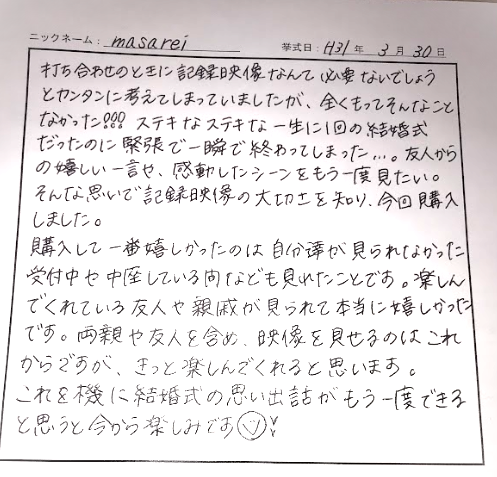 ニックネーム: masarei 挙式日: H31年 3月 30日
打ち合わせのときに記録映像なんて必要ないでしょう
とカンタンに考えてしまっていましたが、全くもってそんなこと
なかった!!! ステキなステキな一生に1回の結婚式
だったのに緊張で一瞬で終わってしまった…。友人から
の嬉しい一言や、感動したシーンをもう一度見たい。
そんな思いで記録映像の大切さを知り、今回購入
しました。
購入して一番嬉しかったのは自分達が見られなかった
受付中や中座している間なども見れたことです。楽しん
でくれている友人や親戚が見られて本当に嬉しかった
です。両親や友人を含め、映像を見せるのはこれ
からですが、きっと楽しんでくれると思います。
これを機に結婚式の思い出話がもう一度できる
と思うと今から楽しみです